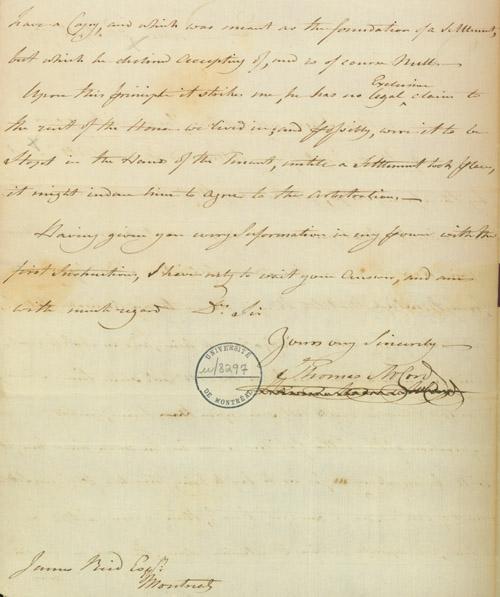 have a Copy, and which was meant as the foundation of a Settlement,
but which he declined accepting of, and is of course Null.—
Upon this principle it strikes me, he has no legal Exclusive claim to
the rent of the House we lived in, and possibly, were it to be
stopt in the Hands of the Tenant, untile a Settlement took place,
it might induce him to agree to the Arbitration.—
Having given you every Information in my power with the
first Instruction, I have only to wait your Answer, and am
with much regard Dr. Sir
Yours very Sincerely
Thomas McCord
UNIVERSITÉ
u/8297
DE MONTRÉAL
James Reid Esqr.
Montreal